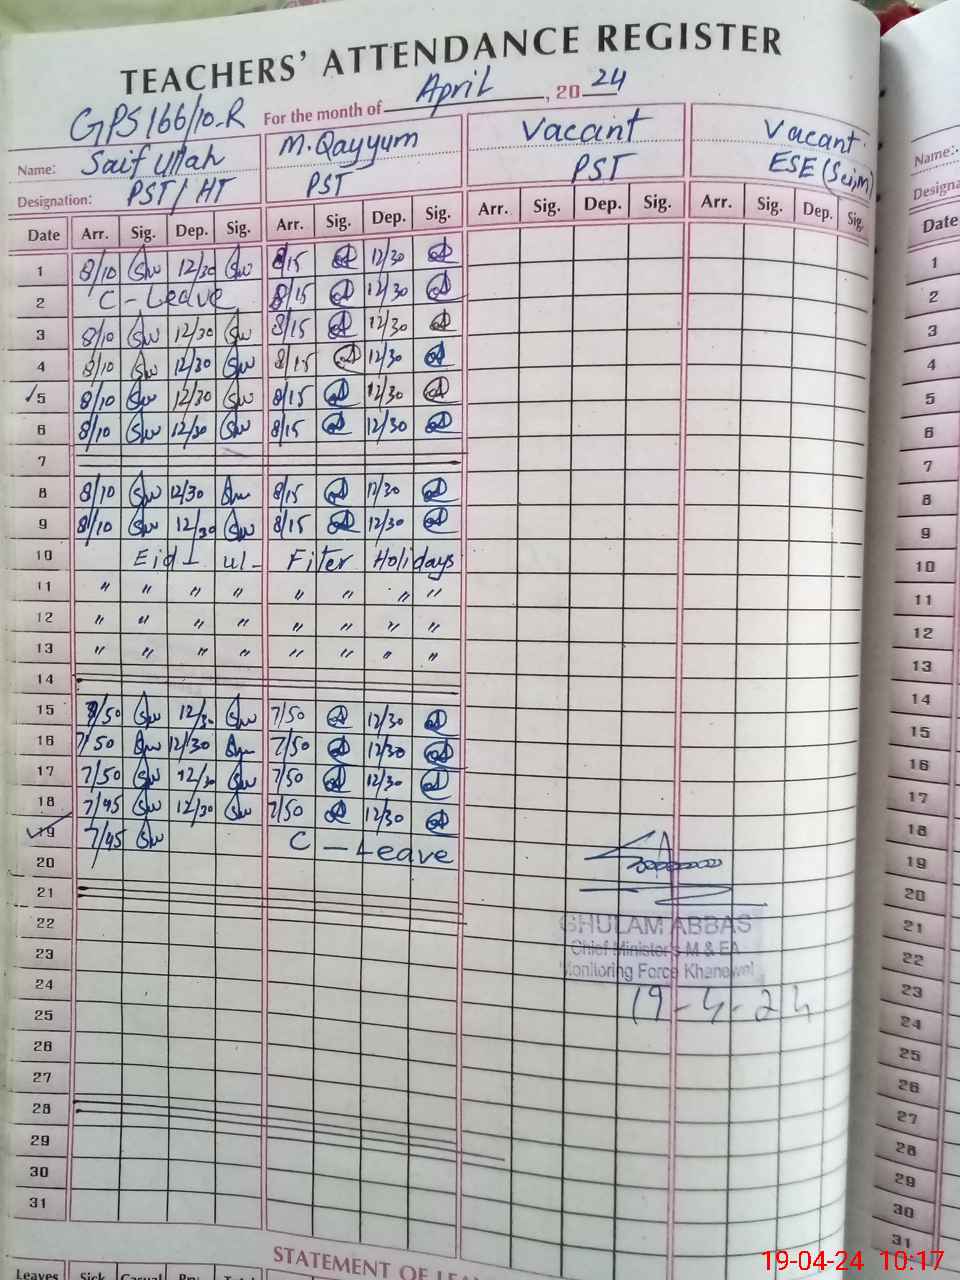 TEACHERS' ATTENDANCE REGISTER
GPS 166/10-R For the month of April, 20 24
Name: Saif Ullah M. Qayyum Vacant Vacant
Designation: PST/HT PST PST ESE (Sci,M)
Date Arr. Sig. Dep. Sig. Arr. Sig. Dep. Sig. Arr. Sig. Dep. Sig. Arr. Sig. Dep. Sig.
1 8/10 12/30 8/15 12/30
2 C - Leave 8/15 12/30
3 8/10 12/30 8/15 12/30
4 8/10 12/30 8/15 12/30
5 8/10 12/30 8/15 12/30
6 8/10 12/30 8/15 12/30
7
8 8/10 12/30 8/15 12/30
9 8/10 12/30 8/15 12/30
10 Eid - ul - Fiter Holidays
11 " " " " " " " "
12 " " " " " " " "
13 " " " " " " " "
14
15 7/50 12/30 7/50 12/30
16 7/50 12/30 7/50 12/30
17 7/50 12/30 7/50 12/30
18 7/45 12/30 7/50 12/30
19 7/45 C - Leave
20
21
22
23
24
25
26
27
28
29
30
31
GHULAM ABBAS
Chief Minister's M & EA
Monitoring Force Khanewal
19-4-24
STATEMENT OF
Leaves Sick Casual
Name:-
Designa
Date
1
2
3
4
5
6
7
8
9
10
11
12
13
14
15
16
17
18
19
20
21
22
23
24
25
26
27
28
29
30
31
19-04-24 10:17